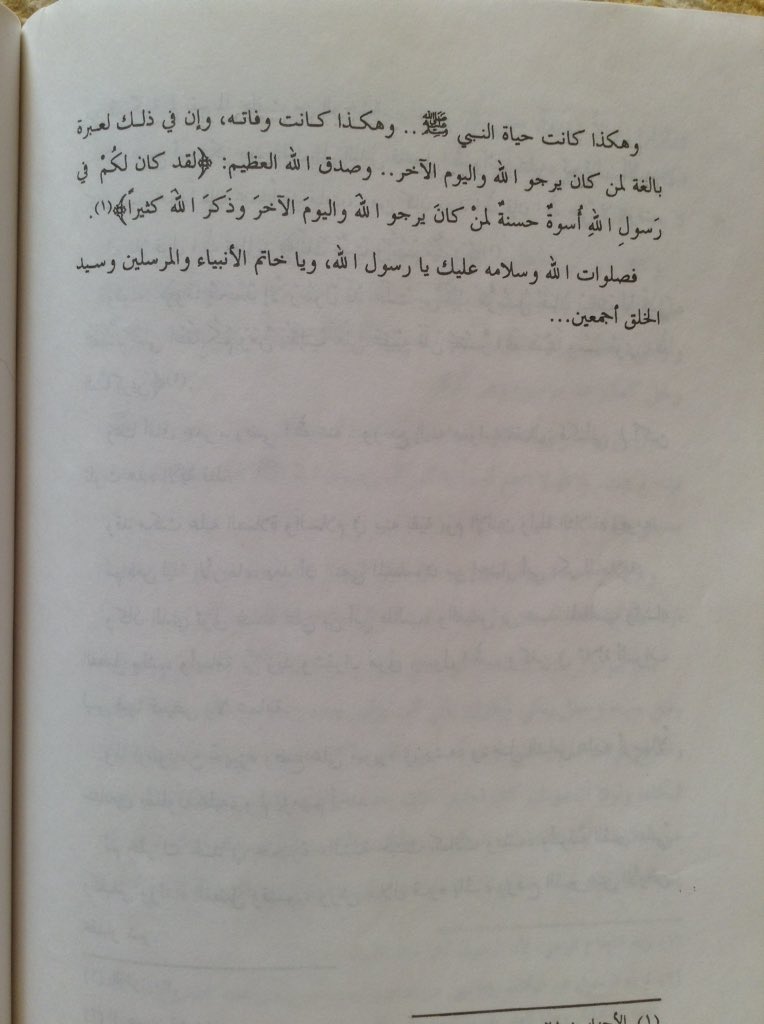 وهكذا كانت حياة النبي ﷺ.. وهكذا كانت وفاته، وإن في ذلك لعبرة
بالغة لمن كان يرجو الله واليوم الآخر.. وصدق الله العظيم: ﴿لقد كان لكُمْ في
رَسولِ اللهِ أُسوةٌ حسنةٌ لمنْ كانَ يرجو اللهَ واليومَ الآخرَ وذَكرَ اللهَ كثيراً﴾(١).
فصلوات الله وسلامه عليك يا رسول الله، ويا خاتم الأنبياء والمرسلين وسيد
الخلق أجمعين...
(١)